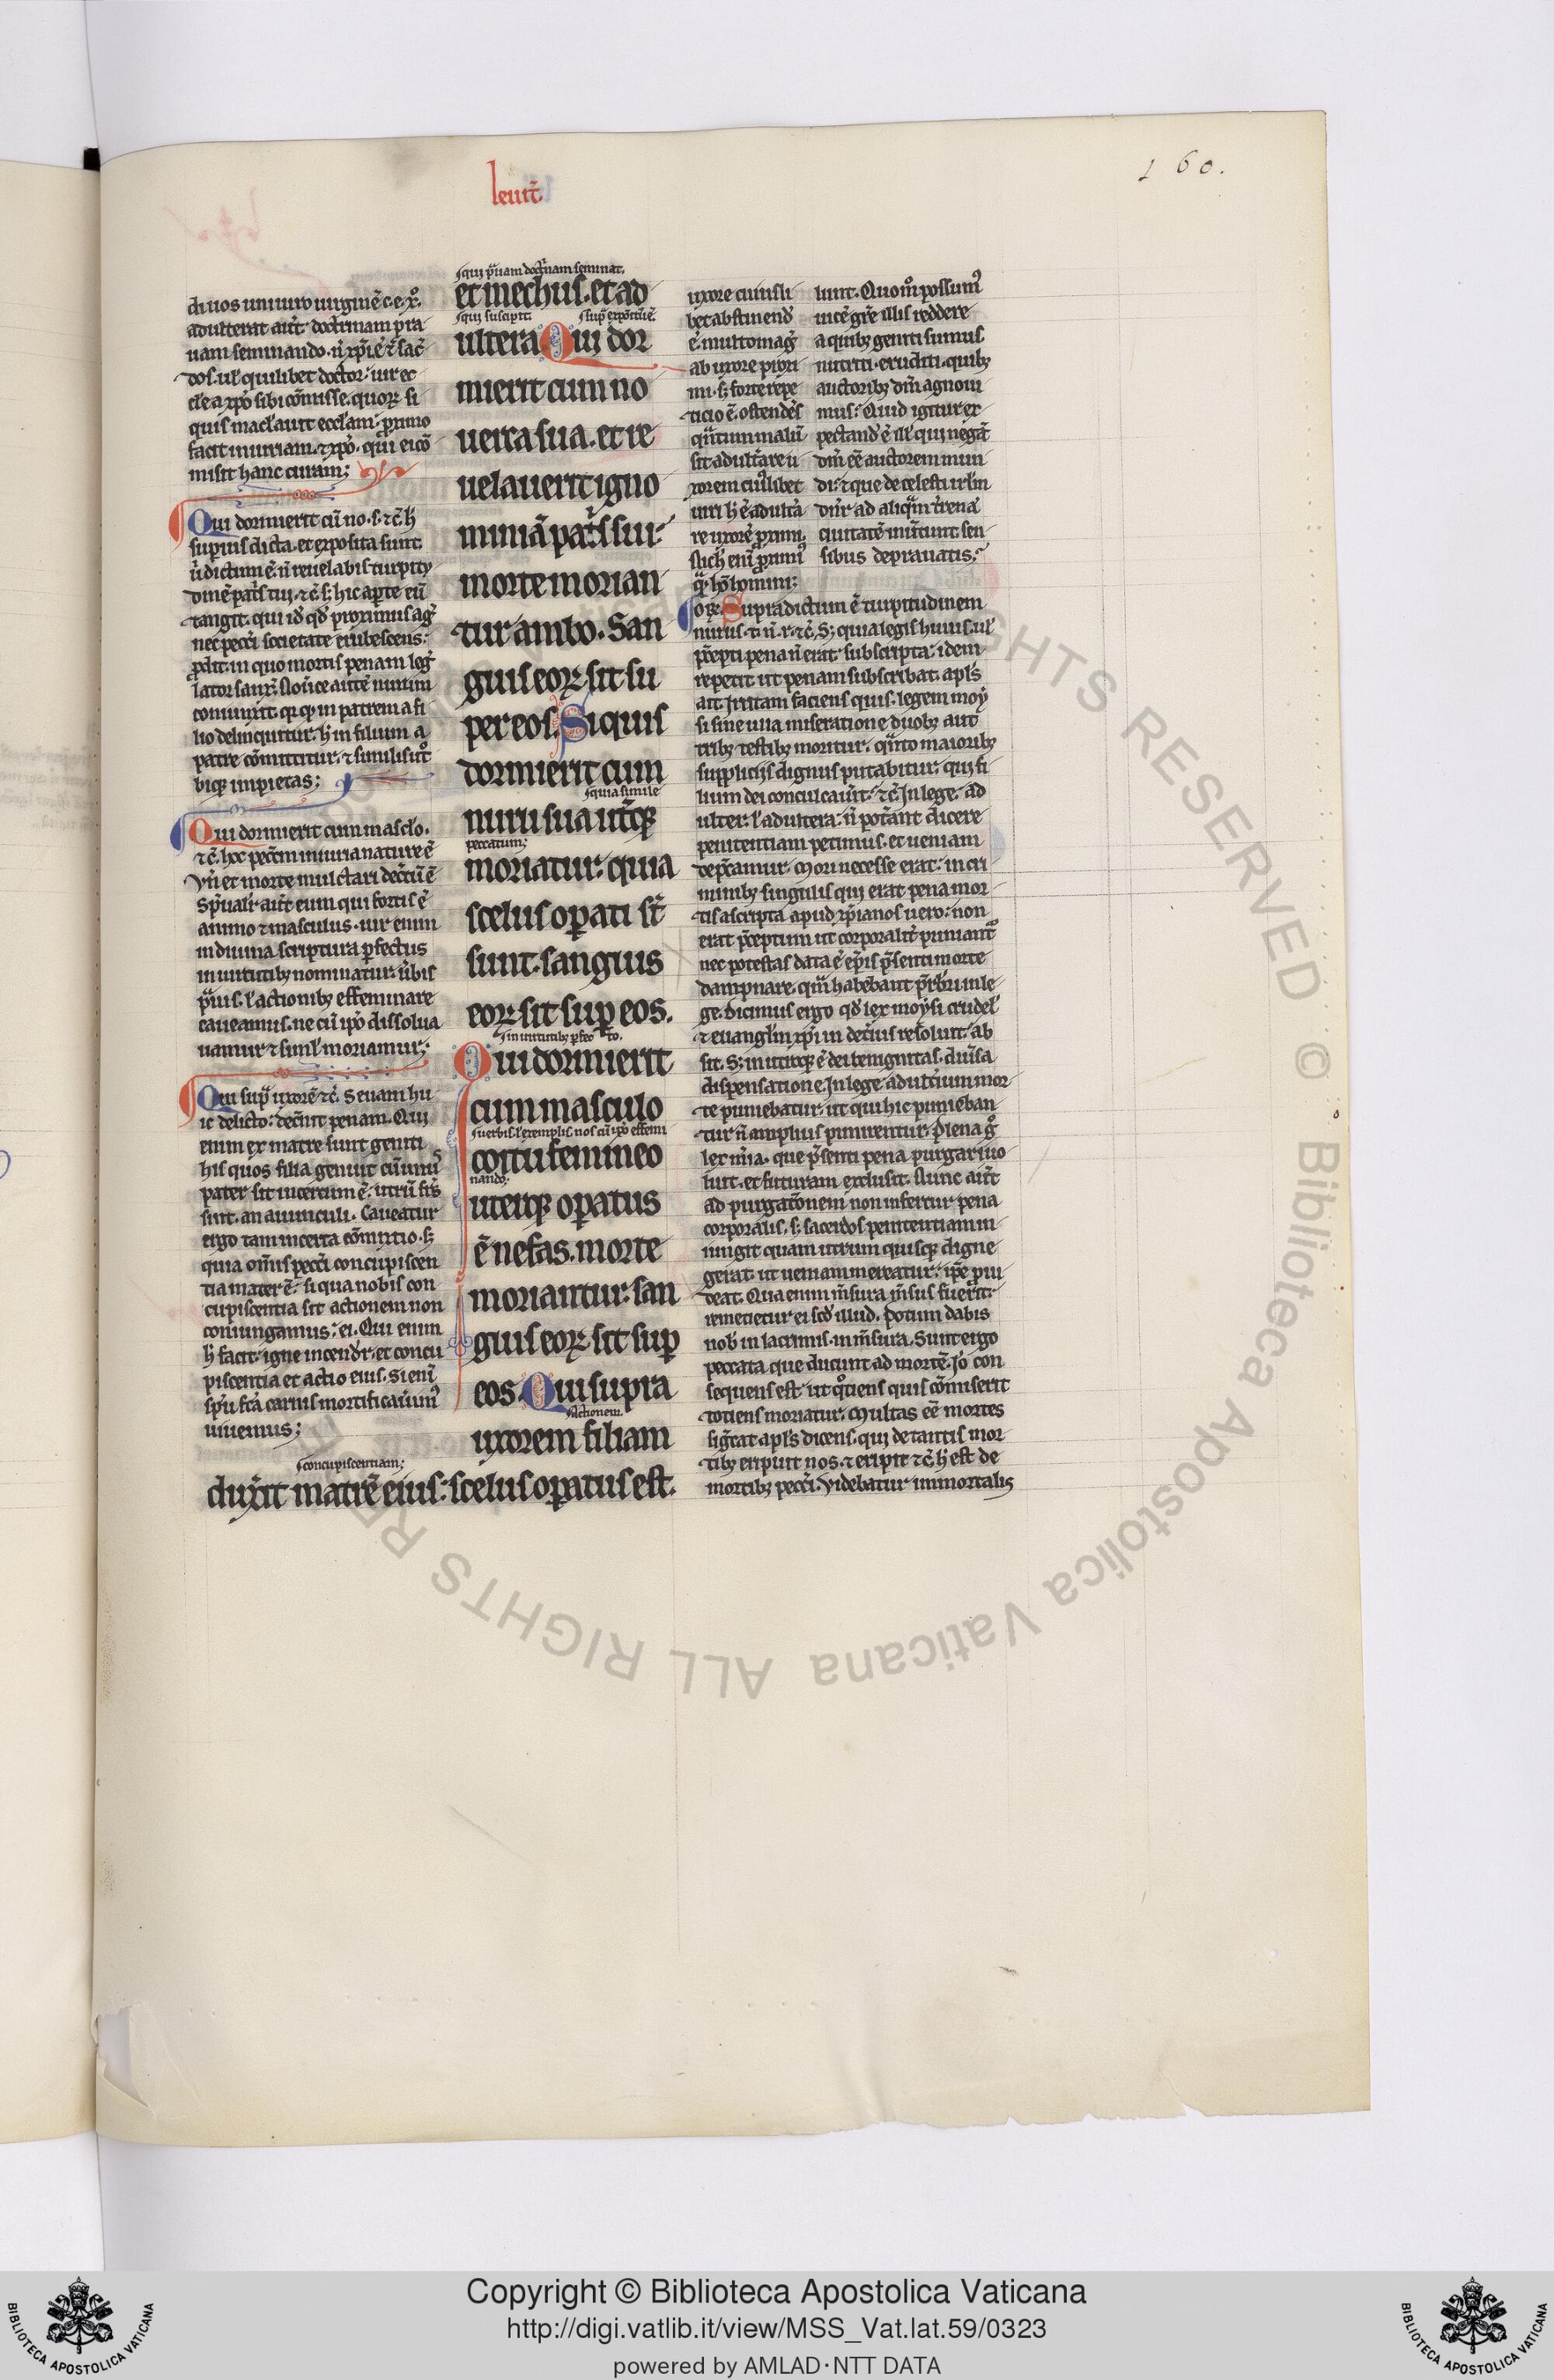 leuit̄
160.
diuos uni uiro uirginē c. ex̄.
adulterat aut̄ doctrinam pra
uam seminando.
dos. uel quilibet doctor: uir ec
misit hanc curam;
Qui dormierit cū no. s. ⁊c̄. h̄
supius dicta. et exposita sunt.
tangit. qui id qd̄ proximus
nec pecc̄i societate erubescens:
in quo mortis penam
coniunxit. in patrem a fi
lio delinquitur. h̄ in filium a
patre cōmittitur. ⁊ similis
impietas;
Qui dormierit cum masclo.
⁊c̄. hoc pecc̄m iniuria nature ē
vn̄ et morte mulctari
aut̄ eum qui fortis ē
animo ⁊ masculus. uir enim
in diuina scriptura ꝑfectus
in uirtutibꝫ nominatur.
actionibꝫ effeminare
caueamus. ne cū ip̄o dissolua
mur ⁊ siml̓ moriamur;
Qui sup̄ uxorē ⁊c̄. Seuam hu
ic delicto: penam. Qui
enim ex matre sunt geniti
his quos filia genuit cū unꝰ
pater sit incertum ē. utrū fr̄s
sint. an auunculi. Caueatur
ergo tam incerta cōmixtio. sꝫ
quia om̄is pecc̄i concupiscen
tia mater ē. si qua nobis con
cupiscentia sit actionem non
coniungamus; ei. Qui enim
h̄ facit. igne incendr̄. et concu
piscentia et actio eius. Si eni
carnis
uiuemus;
squi prauam doctrinam seminat.
et mechus. et ad
squi suscipit.
ultera Qui dor
mierit cum no
uerca sua. et re
uelauerit igno
miniā pat̄s sui:
morte morian
tur ambo. San
guis eoꝝ sit su
per eos. Si quis
dormierit cum
squia simile
nuru sua ut̄qꝫ
peccatum;
moriatur: quia
scelus oꝑati st̄
sunt. sanguis
eoꝝ sit suꝑ eos.
s in uirtutibꝫ ꝑfec to.
Qui dormierit
cum masculo
s uerbis. l̓ exemplis. nos cū ip̄o effemi
coitu femineo
nando;
uterqꝫ oꝑatus
ē nefas. morte
moriantur: san
guis eoꝝ sit suꝑ
eos. Qui supra
s actionem.
uxorem filiam
s concupiscentiam;
duxit matrē eius: scelus oꝑatus est.
uxore cuiusli
bet abstinend̓
ē multo mag̓
ab uxore
sꝫ forte repe
ticio ē. ostendēs
qn̄tum malū
sit adult̄are u
xorem
uiri h̄ ē adult̄a
re uxorē proximi.
lunt. Quom̄ possumꝰ
uicē illis reddere
a quibꝫ geniti sumus
nutriti. eruditi. quibꝫ
auctoribꝫ dm̄ agnoui
mus: Quid igitur ex
pectand̓ ē ill̓ qui negāt
dm̄ eē auctorem mun
di: ⁊ que de celesti
ad aliq̄m terrenā
ciuitatē sen
sibus deprauatis;
Supradictum ē turpitudinem
nurus. t. n̄. r. ⁊c̄. Sꝫ quia legis huius. ul̓
p̄cepti pena n̄ erat subscripta: idem
repetit ut penam subscribat. apl̓s
ait. Irritam faciens quis. legem moy
si sine ulla miseratione duobꝫ aut
tribꝫ testibꝫ moritur. qn̄to maioribꝫ
suppliciis dignus putabitur. qui fi
lium dei conculcau̓it: ⁊c̄. In lege. ad
ulter. l̓ adultera: n̄ pot̄ant dicere
penitentiam petimus. et ueniam
dep̄camur. Mori necesse erat: in cri
minibꝫ singulis qui erat pena mor
tis ascripta. apud xp̄ianos uero: non
erat p̄ceptum ut corporalit̄ puniant᷑
nec potestas data ē ep̄is p̄senti morte
dampnare. qm̄ habebant p̄sb̄ri in le
ge. Dicimus ergo qd̄ lex moysi crudel̓
⁊ euangl̓m xp̄i in det̄ius resoluit: ab
sit. Sꝫ in ut̄qꝫ ē dei benignitas. diu̓sa
dispensatione. In lege adult̄ium mor
te puniebatur. ut qui hic punieban
tur n̄ amplius punirentur. Plena g̊
lex mīa. que p̄senti pena
et futuram exclusit. Nunc aut̄
ad purgatōnem non infertur pena
corporalis. sꝫ sacerdos penitentiam in
iungit quam utrum quisqꝫ digne
gerat. ut ueniam mereatur: ip̄e
deat. Qua enim m̄sura m̄sus fuerit:
remetietur ei scd̄ illud. Potum dabis
nob̓ in lacrimis. in m̄sura. Sunt ergo
peccata que ducunt ad mortē. Io̓ con
sequens est ut q̊tiens quis cōmiserit
totiens moriatur. Multas eē mortes
sig̓cat apl̓s dicens. qui de tantis mor
tibꝫ eripuit nos. ⁊ eripit ⁊c̄. h̄ est de
mortibꝫ pecc̄i. Videbatur immortalis
ALL RIGHTS RESERVED © Biblioteca Apostolica Vaticana
Copyright © Biblioteca Apostolica Vaticana
http://digi.vatlib.it/view/MSS_Vat.lat.59/0323
powered by AMLAD·NTT DATA
BIBLIOTECA APOSTOLICA VATICANA
BIBLIOTECA APOSTOLICA VATICANA